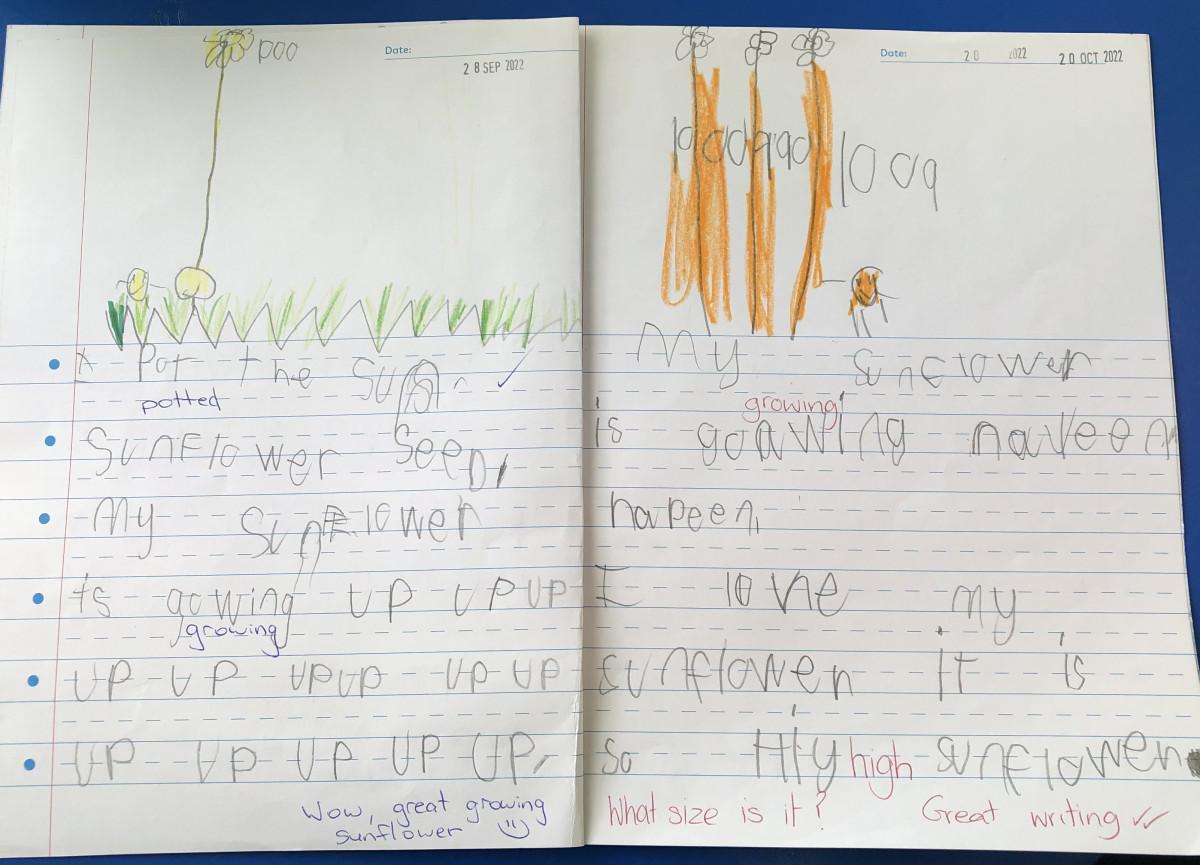 poo
Date:
28 SEP 2022
I Pot the Sun
potted
SunFlower Seed,
My SunFlower
is gowing UP UP UP
growing
UP UP UP UP UP UP
UP UP UP UP UP,
Wow, great growing
sunflower
Date:
20 2022 20 OCT 2022
My sunflower
growing
is goawing naveen
haveen,
I love my
sunflower it is
so Hiy high sunflower
What size is it? Great writing